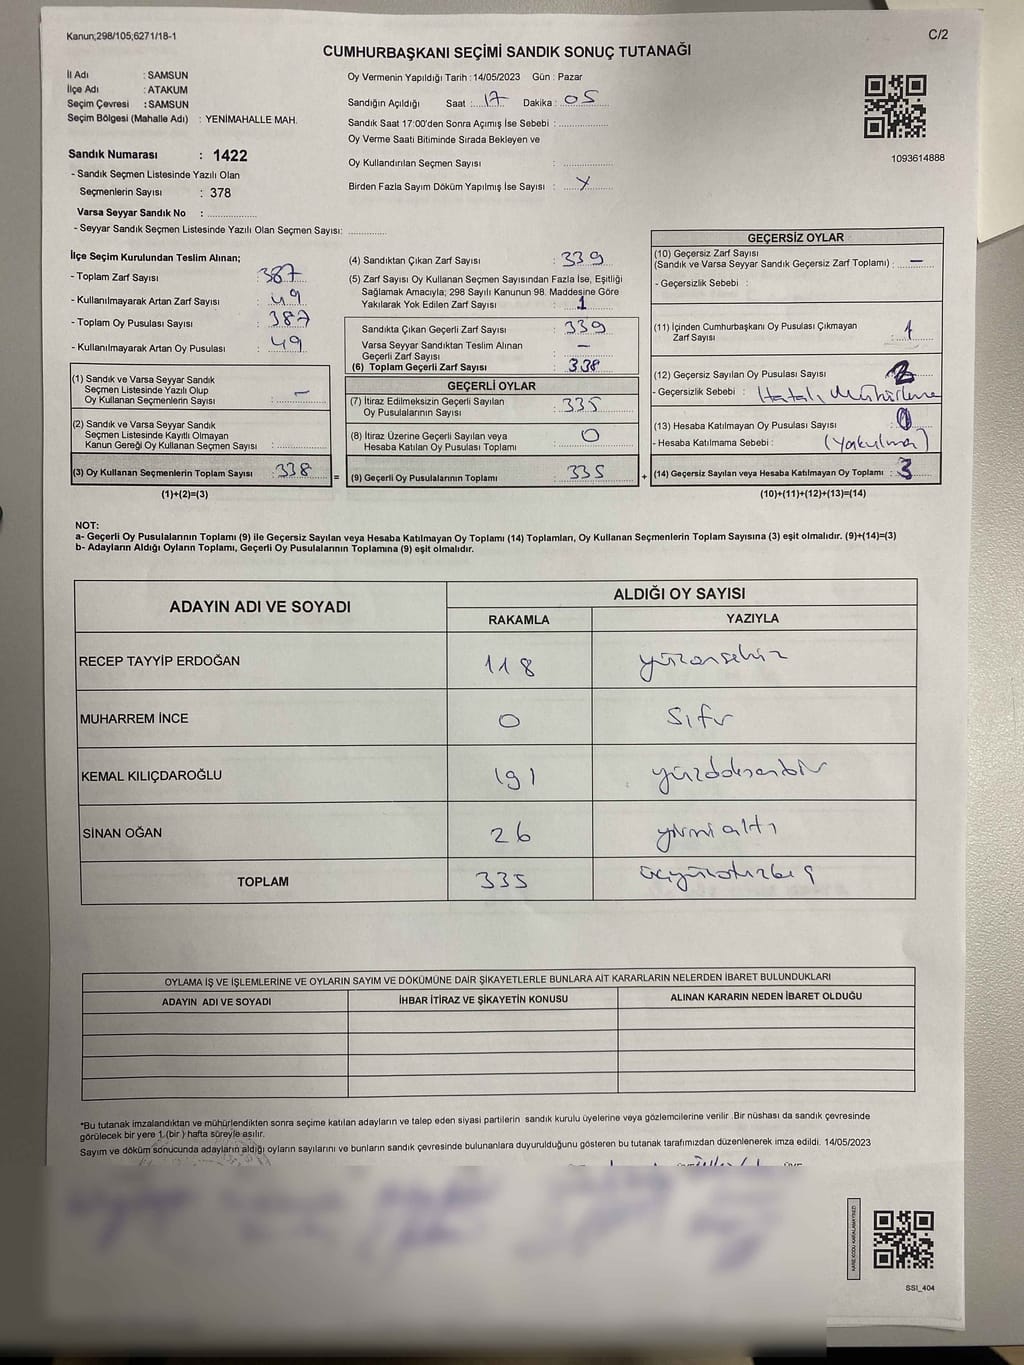 Kanun;298/105,6271/18-1
C/2
CUMHURBAŞKANI SEÇİMİ SANDIK SONUÇ TUTANAĞI
İl Adı : SAMSUN
İlçe Adı : ATAKUM
Seçim Çevresi : SAMSUN
Seçim Bölgesi (Mahalle Adı) : YENİMAHALLE MAH.
Sandık Numarası : 1422
- Sandık Seçmen Listesinde Yazılı Olan
Seçmenlerin Sayısı : 378
Varsa Seyyar Sandık No : ................
- Seyyar Sandık Seçmen Listesinde Yazılı Olan Seçmen Sayısı: ............
Oy Vermenin Yapıldığı Tarih : 14/05/2023 Gün : Pazar
Sandığın Açıldığı Saat : 17 Dakika : 05
Sandık Saat 17:00'den Sonra Açımış İse Sebebi : ................
Oy Verme Saati Bitiminde Sırada Bekleyen ve
Oy Kullandırılan Seçmen Sayısı : ................
Birden Fazla Sayım Döküm Yapılmış İse Sayısı :
1093614888
İlçe Seçim Kurulundan Teslim Alınan;
- Toplam Zarf Sayısı : 387
- Kullanılmayarak Artan Zarf Sayısı : 49
- Toplam Oy Pusulası Sayısı : 387
- Kullanılmayarak Artan Oy Pusulası : 49
(1) Sandık ve Varsa Seyyar Sandık
Seçmen Listesinde Yazılı Olup
Oy Kullanan Seçmenlerin Sayısı : —
(2) Sandık ve Varsa Seyyar Sandık
Seçmen Listesinde Kayıtlı Olmayan
Kanun Gereği Oy Kullanan Seçmen Sayısı : ................
(3) Oy Kullanan Seçmenlerin Toplam Sayısı : 338
(1)+(2)=(3)
=
(4) Sandıktan Çıkan Zarf Sayısı : 339
(5) Zarf Sayısı Oy Kullanan Seçmen Sayısından Fazla İse, Eşitliği
Sağlamak Amacıyla; 298 Sayılı Kanunun 98. Maddesine Göre
Yakılarak Yok Edilen Zarf Sayısı : 1
Sandıkta Çıkan Geçerli Zarf Sayısı : 339
Varsa Seyyar Sandıktan Teslim Alınan
Geçerli Zarf Sayısı : —
(6) Toplam Geçerli Zarf Sayısı : 338
GEÇERLİ OYLAR
(7) İtiraz Edilmeksizin Geçerli Sayılan
Oy Pusulalarının Sayısı : 335
(8) İtiraz Üzerine Geçerli Sayılan veya
Hesaba Katılan Oy Pusulası Toplamı : 0
(9) Geçerli Oy Pusulalarının Toplamı : 335
+
GEÇERSİZ OYLAR
(10) Geçersiz Zarf Sayısı
(Sandık ve Varsa Seyyar Sandık Geçersiz Zarf Toplamı) : —
- Geçersizlik Sebebi :
(11) İçinden Cumhurbaşkanı Oy Pusulası Çıkmayan
Zarf Sayısı : 1
(12) Geçersiz Sayılan Oy Pusulası Sayısı : 2
- Geçersizlik Sebebi : Hatalı Mühürleme
(13) Hesaba Katılmayan Oy Pusulası Sayısı : 0
- Hesaba Katılmama Sebebi : (Yakılma)
(14) Geçersiz Sayılan veya Hesaba Katılmayan Oy Toplamı : 3
(10)+(11)+(12)+(13)=(14)
NOT:
a- Geçerli Oy Pusulalarının Toplamı (9) ile Geçersiz Sayılan veya Hesaba Katılmayan Oy Toplamı (14) Toplamları, Oy Kullanan Seçmenlerin Toplam Sayısına (3) eşit olmalıdır. (9)+(14)=(3)
b- Adayların Aldığı Oyların Toplamı, Geçerli Oy Pusulalarının Toplamına (9) eşit olmalıdır.
ADAYIN ADI VE SOYADI
ALDIĞI OY SAYISI
RAKAMLA YAZIYLA
RECEP TAYYİP ERDOĞAN 118 yüzonsekiz
MUHARREM İNCE 0 Sıfır
KEMAL KILIÇDAROĞLU 191 yüzdoksanbir
SİNAN OĞAN 26 yirmialtı
TOPLAM 335 üçyüzotuzbeş
OYLAMA İŞ VE İŞLEMLERİNE VE OYLARIN SAYIM VE DÖKÜMÜNE DAİR ŞİKAYETLERLE BUNLARA AİT KARARLARIN NELERDEN İBARET BULUNDUKLARI
ADAYIN ADI VE SOYADI İHBAR İTİRAZ VE ŞİKAYETİN KONUSU ALINAN KARARIN NEDEN İBARET OLDUĞU
*Bu tutanak imzalandıktan ve mühürlendikten sonra seçime katılan adayların ve talep eden siyasi partilerin sandık kurulu üyelerine veya gözlemcilerine verilir .Bir nüshası da sandık çevresinde
görülecek bir yere 1 (bir ) hafta süreyle asılır.
Sayım ve döküm sonucunda adayların aldığı oyların sayılarını ve bunların sandık çevresinde bulunanlara duyurulduğunu gösteren bu tutanak tarafımızdan düzenlenerek imza edildi. 14/05/2023
KAREKODU KARALAMAYINIZ!
SSİ_404